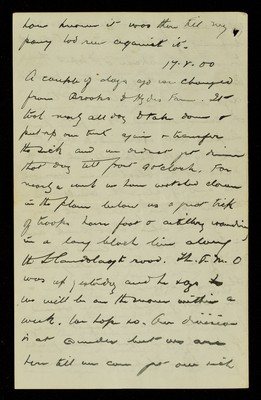 have known it was there till my
pony had run against it.
17.8.00
A couple of days ago we changed
from Brooks to Hydes Farm. It
took nearly all day to take down &
put up our tents again & transfer
the sick and we didnt get dinner
that day till past 9 oclock. For
nearly a week we have watched down
in the plain below us a great trek
of troops horse foot & artillery wending
in a long black line along
the Elandslaagte road. The P.M.O
was up yesterday and he says
we will be on the move within a
week. We hope so. Our division
is at Sunday but we are
here till we can get our sick